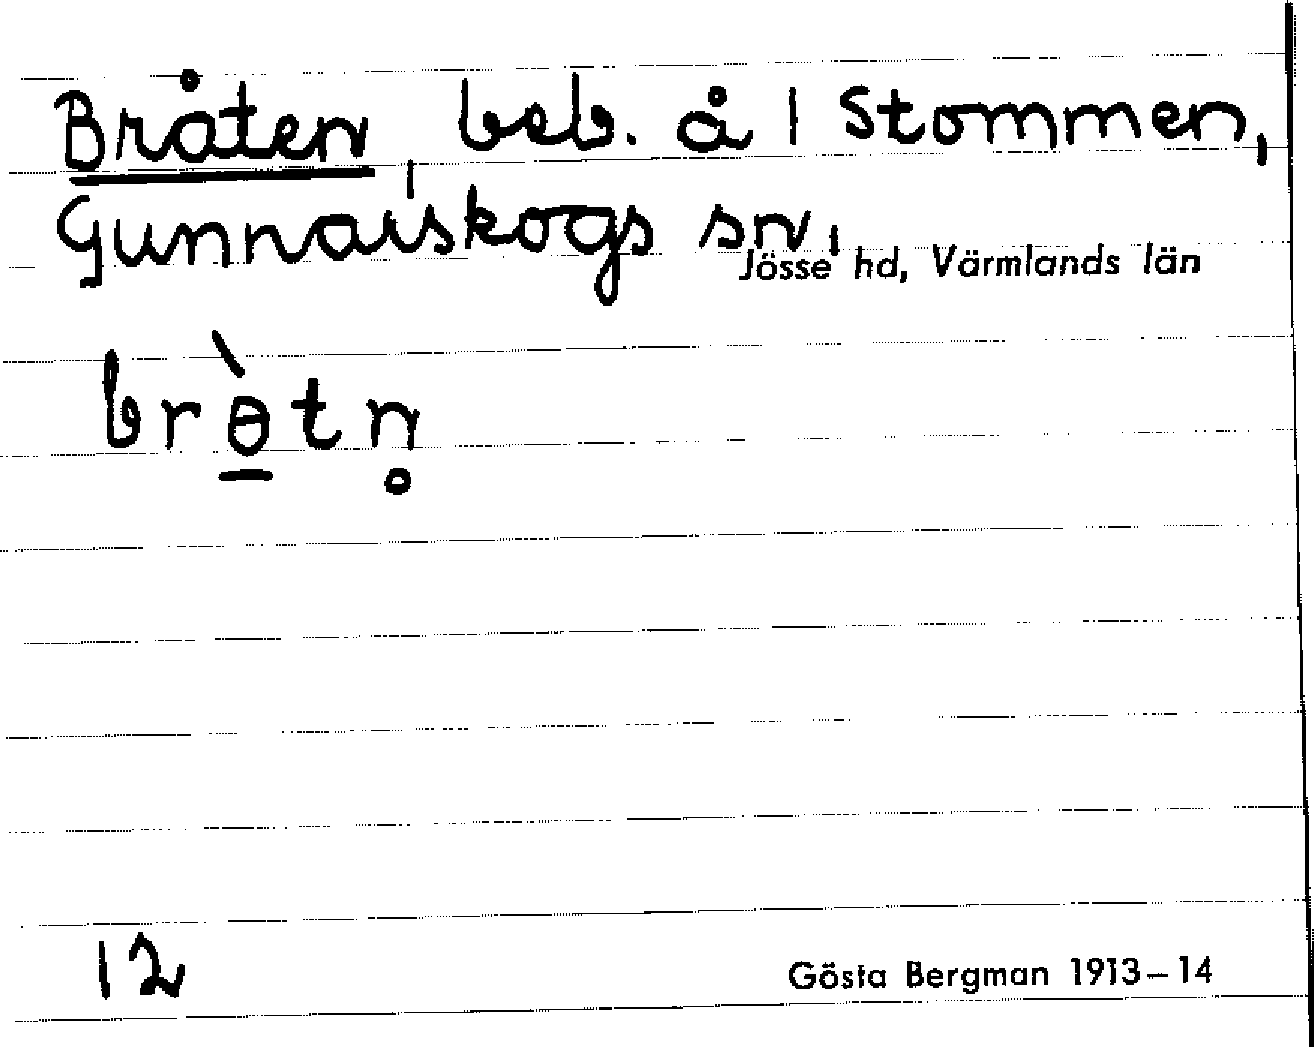 Bråten, beb. å 1 Stommen,
Gunnarskogs sn,
Jösse hd, Värmlands län
brɵ̲̀tn̥
12
Gösta Bergman 1913–14